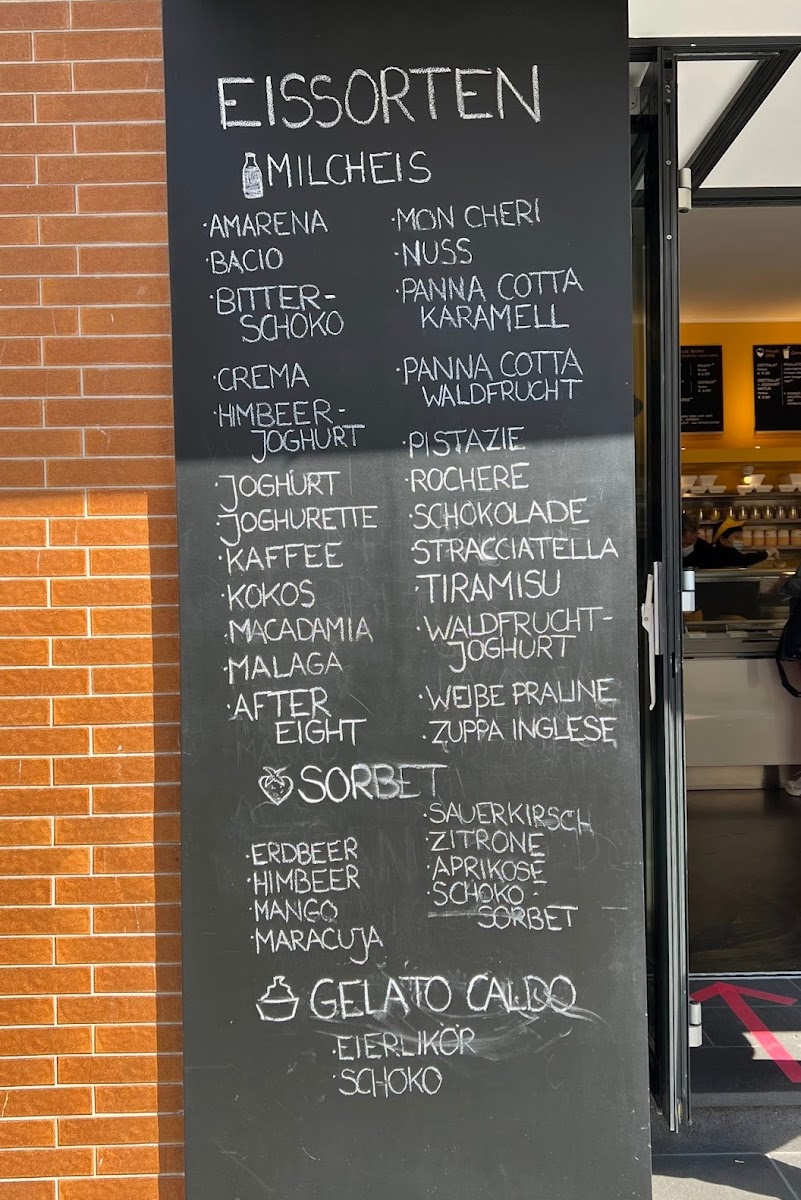 EISSORTEN
MILCHEIS
·AMARENA
·BACIO
·BITTER-
SCHOKO
·CREMA
·HIMBEER-
JOGHURT
·JOGHURT
·JOGHURETTE
·KAFFEE
·KOKOS
·MACADAMIA
·MALAGA
·AFTER
EIGHT
·MON CHERI
·NUSS
·PANNA COTTA
KARAMELL
·PANNA COTTA
WALDFRUCHT
·PISTAZIE
·ROCHERE
·SCHOKOLADE
·STRACCIATELLA
·TIRAMISU
·WALDFRUCHT-
JOGHURT
·WEIßE PRALINE
·ZUPPA INGLESE
SORBET
·ERDBEER
·HIMBEER
·MANGO
·MARACUJA
·SAUERKIRSCH
·ZITRONE
·APRIKOSE
·SCHOKO
SORBET
GELATO CALDO
·EIERLIKÖR
·SCHOKO